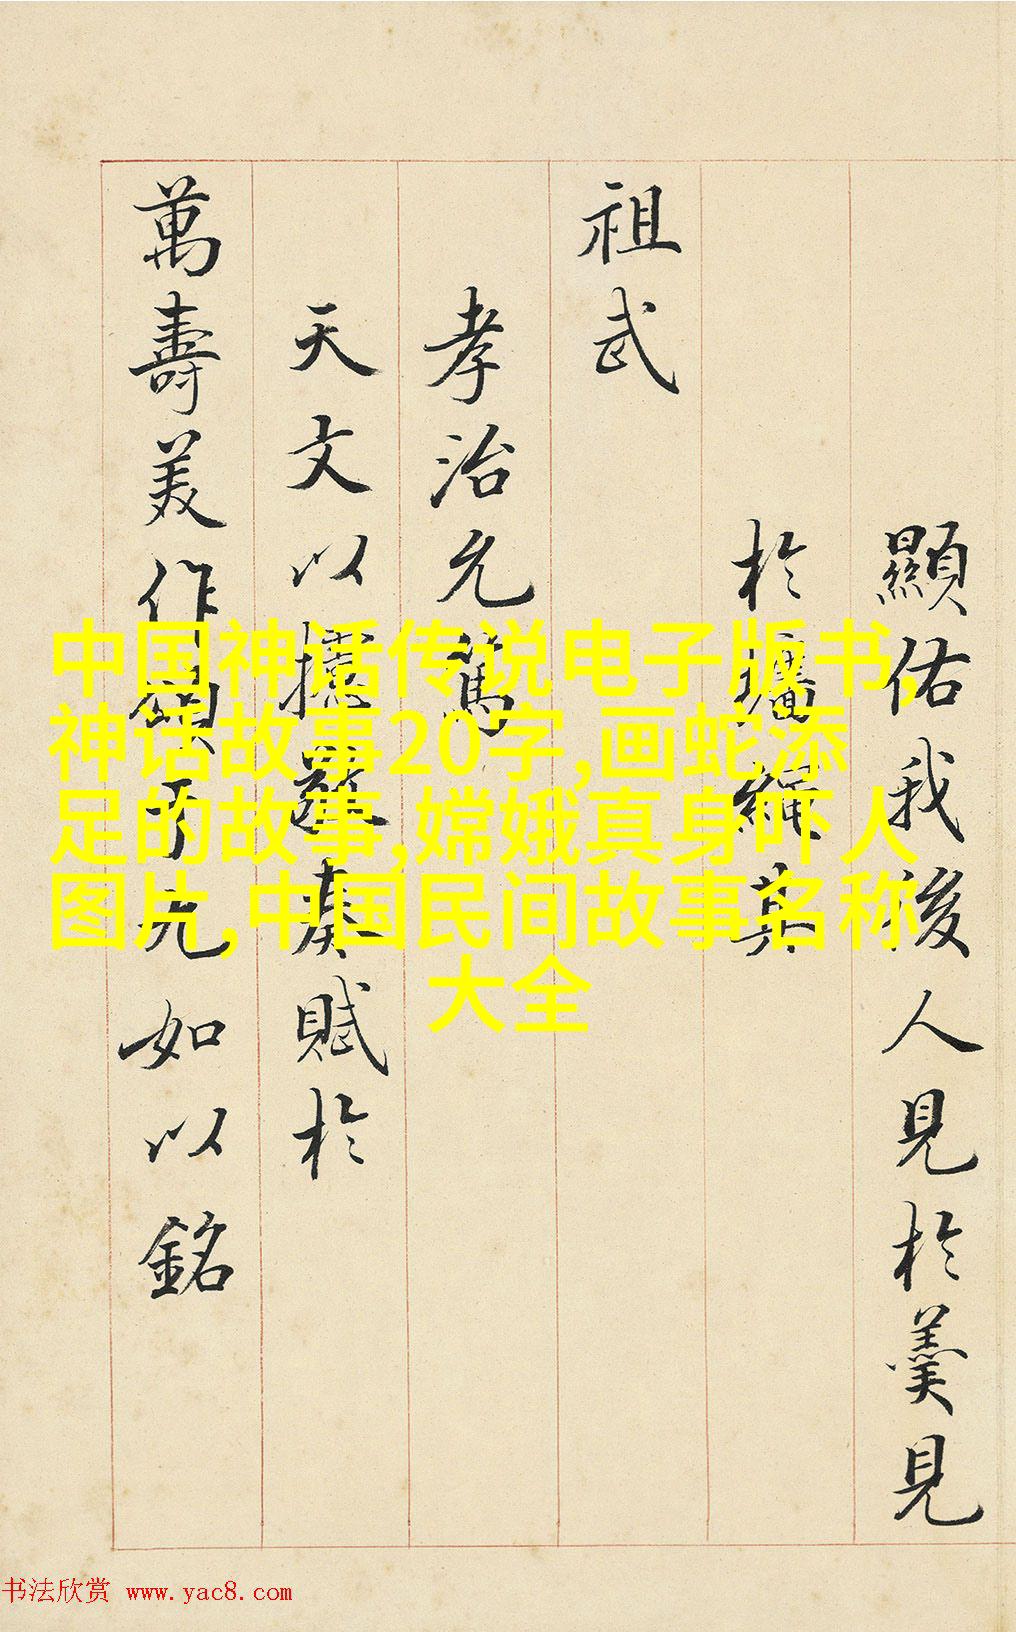 顯佑我後人見於羹見
於 繩其
祖武
孝治允篤
天文以摅 奏賦於
萬壽美作頌于元如以銘
中国神话传说电子版书,
神话故事20字,画蛇添
足的故事,嫦娥真身吓人
图片,中国民间故事名称
大全
书法欣赏 www.yac8.com